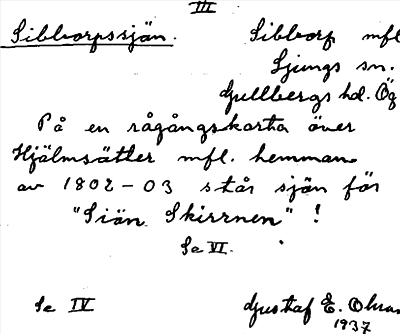 III
Sibborpssjön. Sibborp mfl
Ljungs sn.
Gullbergs hd. Ög
På en rågångskarta över
Hjälmsätter mfl. hemman
av 1802-03 står sjön för
"Siön Skirrnen" !
Se VI.
Se IV Gustaf E. 
1937